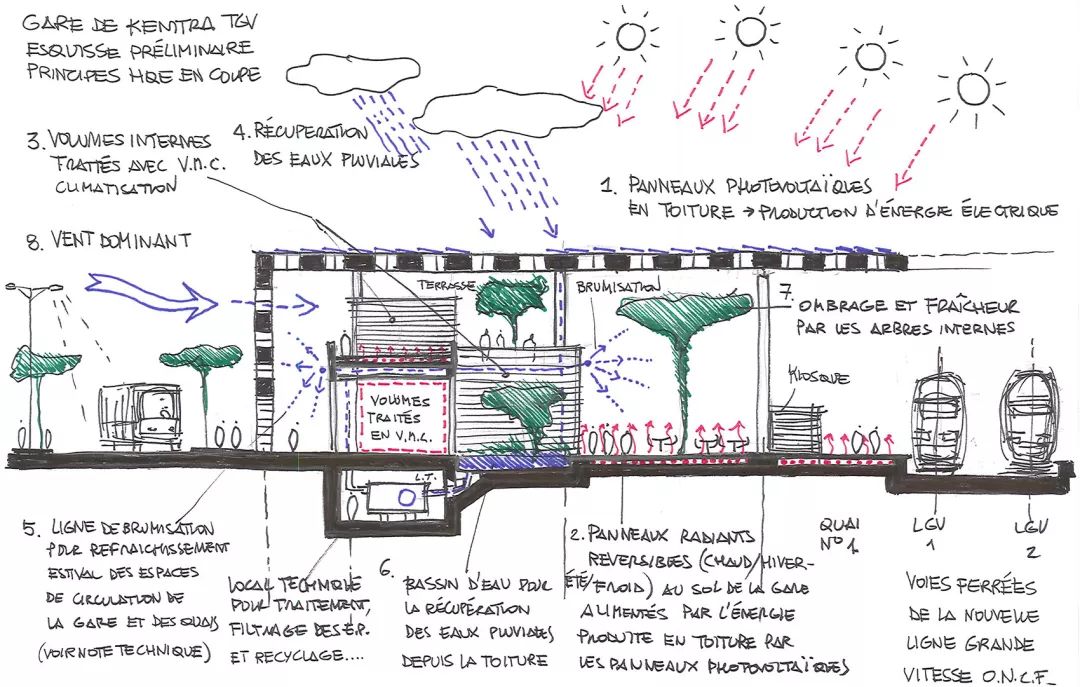 GARE DE KENITRA TGV
ESQUISSE PRÉLIMINAIRE
PRINCIPES HQE EN COUPE
3. VOLUMES INTERNES
TRAITÉS AVEC V.M.C.
CLIMATISATION
4. RÉCUPERATION
DES EAUX PLUVIALES
1. PANNEAUX PHOTOVOLTAÏQUES
EN TOITURE → PRODUCTION D'ÉNERGIE ÉLECTRIQUE
8. VENT DOMINANT
TERRASSE
BRUMISATION
7.
OMBRAGE ET FRAÎCHEUR
PAR LES ARBRES INTERNES
KIOSQUE
VOLUMES
TRAITÉS
EN V.M.C.
L.T.
5. LIGNE DE BRUMISATION
POUR REFRAICHISSEMENT
ESTIVAL DES ESPACES
DE CIRCULATION DE
LA GARE ET DES QUAIS
(VOIR NOTE TECHNIQUE)
LOCAL TECHNIQUE
POUR TRAITEMENT,
FILTRAGE DES E.P.
ET RECYCLAGE....
6.
BASSIN D'EAU POUR
LA RÉCUPÉRATION
DES EAUX PLUVIALES
DEPUIS LA TOITURE
2. PANNEAUX RADIANTS
REVERSIBLES (CHAUD/HIVER-
ÉTÉ/FROID) AU SOL DE LA GARE
ALIMENTÉS PAR L'ÉNERGIE
PRODUITE EN TOITURE PAR
LES PANNEAUX PHOTOVOLTAÏQUES
QUAI
N° 1
LGV
1
LGV
2
VOIES FERRÉES
DE LA NOUVELLE
LIGNE GRANDE
VITESSE O.N.C.F_